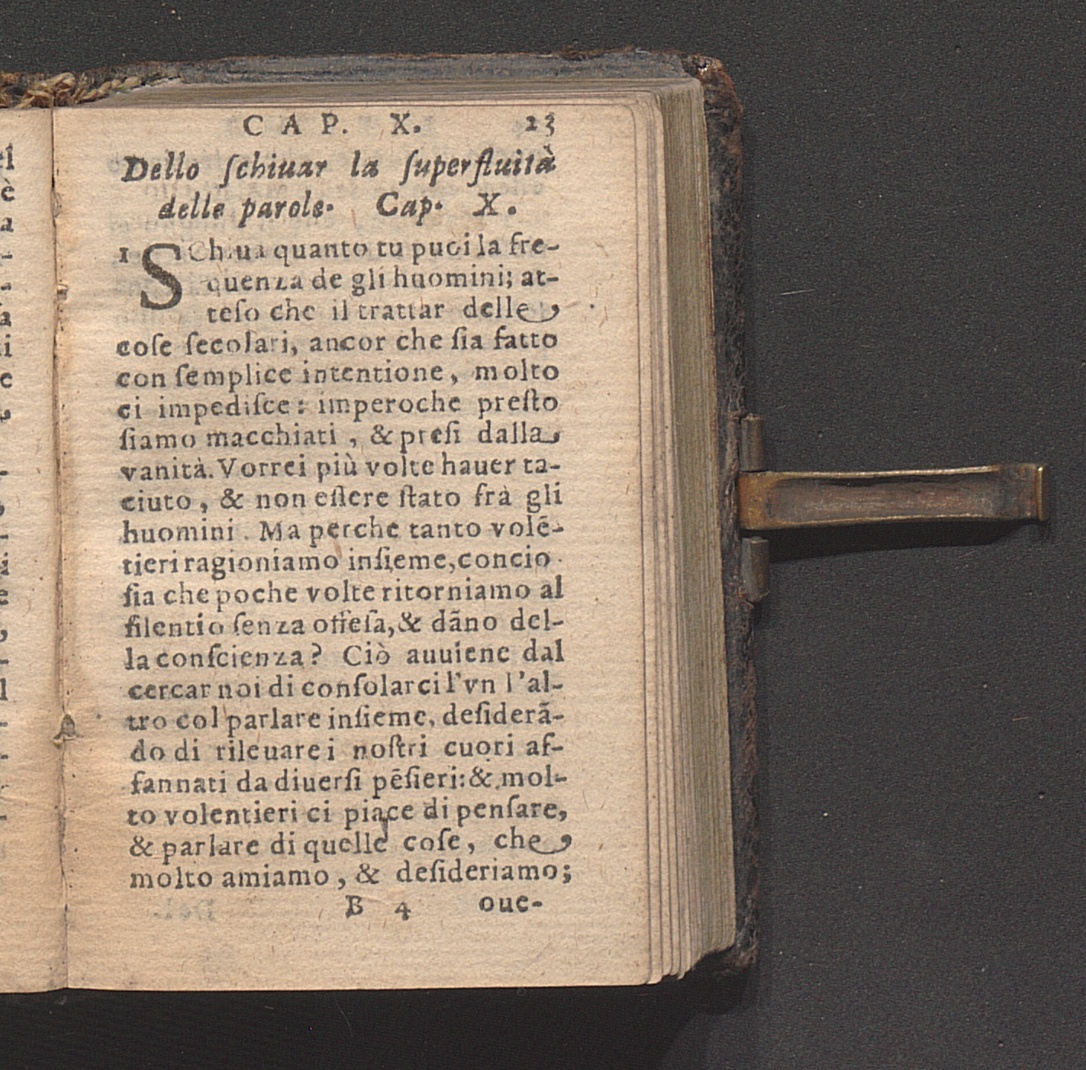 CAP. X. 23
Dello ſchiuar la ſuperfluità
delle parole. Cap. X.
1 SChiua quanto tu puoi la fre-
quenza de gli huomini; at-
teſo che il trattar delle
coſe ſecolari, ancor che ſia fatto
con ſemplice intentione, molto
ci impediſce: imperoche preſto
ſiamo macchiati, & preſi dalla
vanità. Vorrei più volte hauer ta-
ciuto, & non eſſere ſtato frà gli
huomini. Ma perche tanto volẽ-
tieri ragioniamo inſieme, concio
ſia che poche volte ritorniamo al
ſilentio ſenza offeſa, & dãno del-
la conſcienza? Ciò auuiene dal
cercar noi di conſolarci l'vn l'al-
tro col parlare inſieme, deſiderã-
do di rileuare i noſtri cuori af-
fannati da diuerſi pẽſieri: & mol-
to volentieri ci piace di penſare,
& parlare di quelle coſe, che
molto amiamo, & deſideriamo;
B 4 oue-
el
è
a
-
-
à
i
e
-
,
-
i
e
,
-
l
-
-
-